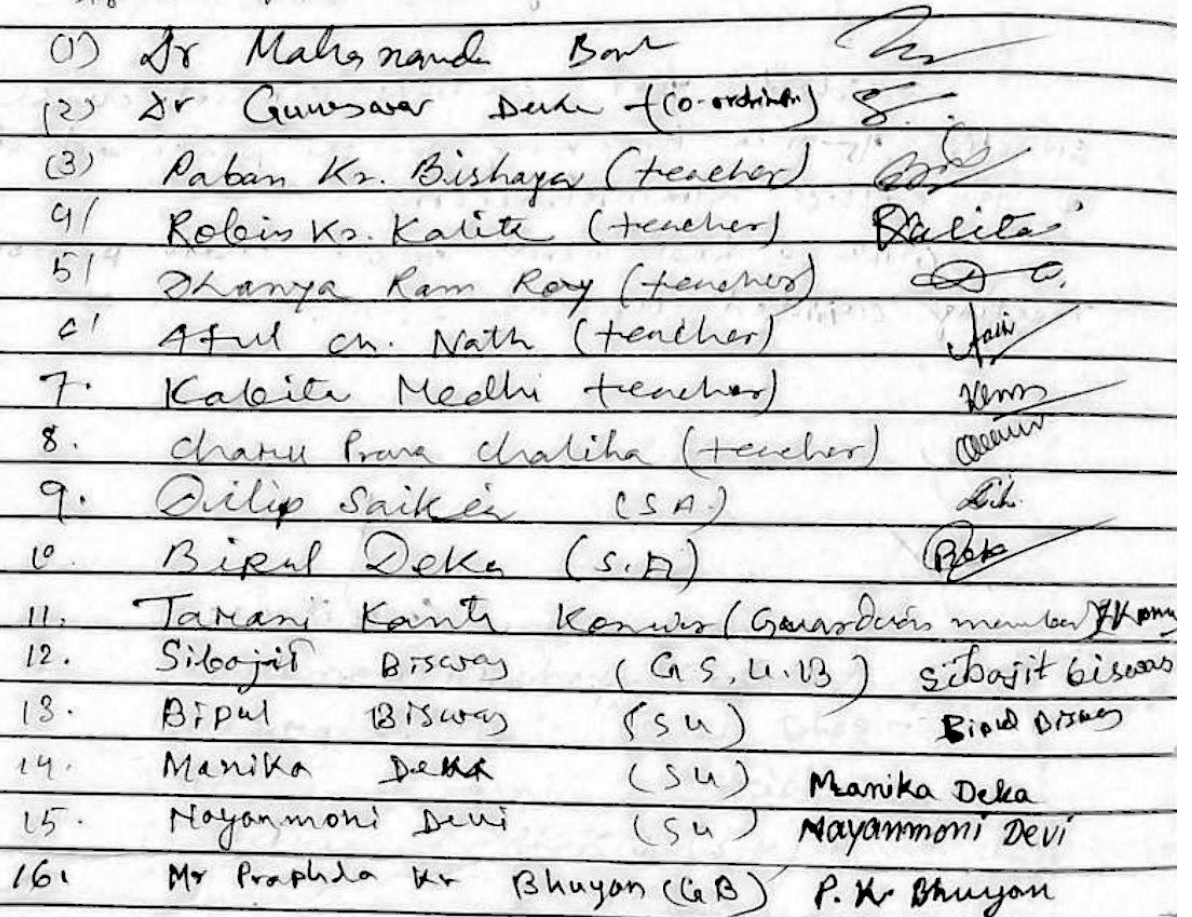 (1) Dr Mahananda Borah
(2) Dr Guneswar Deka (Co-ordinator)
(3) Paban Kr. Bishaya (teacher)
4/ Robin Kr. Kalita (teacher) RKalita
5/ Dhanya Ram Roy (teacher)
6/ Atul ch. Nath (teacher)
7. Kabita Medhi teacher)
8. Charu Prava Chaliha (teacher)
9. Dilip Saikia (SA)
10. Bipul Deka (S.A)
11. Tarani Kanta Konwar (Guardian member) TKonwar
12. Sibojit Biswas (G S, U.B) Sibajit biswas
13. Bipul Biswas (SU) Bipul Biswas
14. Manika Deka (SU) Manika Deka
15. Nayanmoni Devi (SU) Nayanmoni Devi
16. Mr Praphula Kr Bhuyan (GB) P. Kr Bhuyan